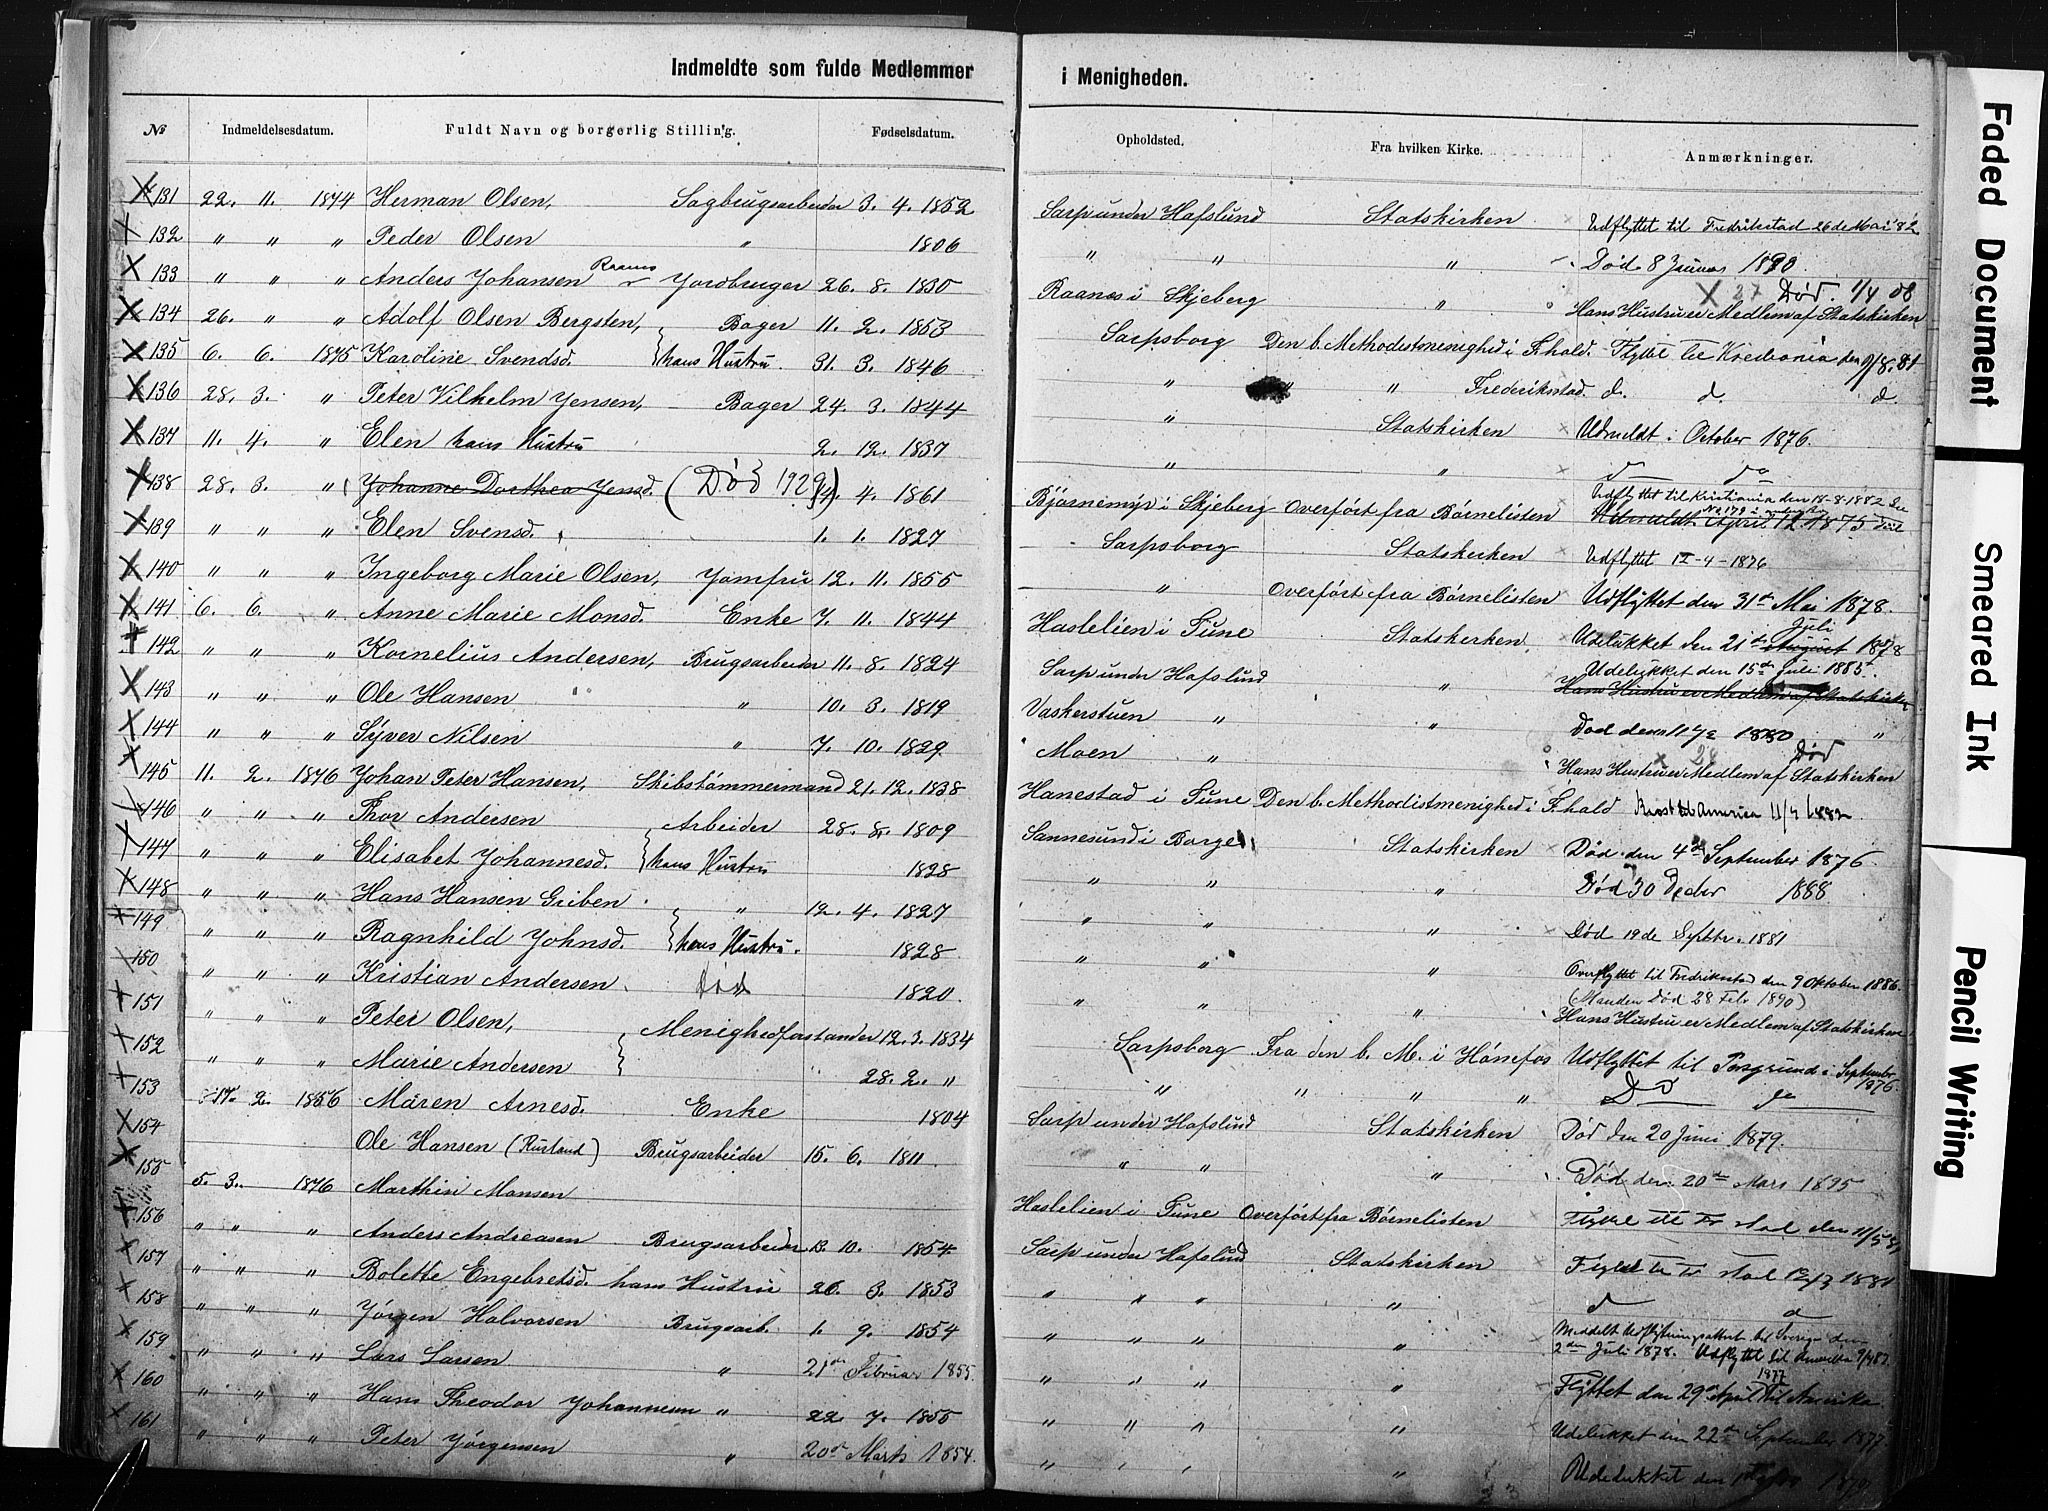 Indmeldte som fulde Medlemmer i Menigheden.
№ Indmeldelsesdatum. Fuldt Navn og borgerlig Stilling. Fødselsdatum. Opholdsted. Fra hvilken Kirke. Anmærkninger.
131 22. 11. 1874 Herman Olsen, Sagbrugsarbeider 3. 4. 1852 Sarp under Hafslund Statskirken Udflyttet til Fredrikstad 26de Mai 82
132 " " " Peder Olsen " 1806 " " " Død 8 Januar 1890.
133 " " " Anders Johansen Raanes Jordbruger 26. 8. 1830 Raanes i Skjeberg " X 27 Død. 1/4 08 Hans Hustru er Medlem af Statskirken
134 26. " " Adolf Olsen Bergsten, Bager 11. 2. 1853 Sarpsborg Den b. Methodistmenighed i F.hald. Flyttet til Kristiania den 9/8. 81
135 6. 6. 1875 Karoline Svendsd. hans Hustru. 31. 3. 1846 " " " Frederiksstad. d. d. d.
136 28. 3. " Peter Vilhelm Jensen, Bager 24. 3. 1844 " Statskirken Udmeldt i October 1876.
137 11. 4. " Elen hans Hustru 2. 12. 1837 " " d do
138 28. 3. " Johanne Dorthea Jensd. (Død 1929) 4. 4. 1861 Bjørnemyr i Skjeberg Overført fra Børnelisten Udflyttet til Kristiania den 18-8-1882
139 " " " Elen Svensd. 1. 1. 1827 Sarpsborg Statskirken Udflyttet IX-4-1876
140 " " " Ingeborg Marie Olsen, Jomfru 12. 11. 1855 " Overført fra Børnelisten Udflyttet den 31te Mai 1878.
141 6. 6. " Anne Marie Monsd. Enke 7. 11. 1844 Haslelien i Tune Statskirken. Udelukket den 21de August Juli 1878
142 " " " Kornelius Andersen, Brugsarbeider 11. 8. 1824 Sarp under Hafslund " Udelukket den 15de Juli 1885. Hans Hustru er Medlem af Statskirken
143 " " " Ole Hansen " 10. 3. 1819 Vaskerstuen " " Død den 11
144 " " " Syver Nilsen " 7. 10. 1829 Moen " X 28 Død Hans Hustru er Medlem af Statskirken
145 11. 2. 1876 Johan Peter Hansen, Skibstømmermand 21. 12. 1838 Hanestad i Tune Den b. Methodistmenighed i F.hald Amerika 11/4 1882
146 " " " Thor Andersen Arbeider 28. 8. 1809 Sannesund i Borge Statskirken Død den 4de September 1876
147 " " " Elisabet Johannesd. hans Hustru 1828 " " " Død 30 Decbr 1888
148 " " " Hans Hansen Griben " 12. 4. 1827 " " " Død 19de Septbr. 1881
149 " " " Ragnhild Johnsd. hans Hustru. 1828 " " " Overflyttet til Fredriksstad den 9 Oktober 1886. (Manden Død 28 Febr 1890)
150 " " " Kristian Andersen Død 1820. " " " Hans Hustru er Medlem af Statskirken
151 " " " Peter Olsen, Menighedforstander 12. 3. 1834 Sarpsborg Fra den b. M. i Hønefos Udflyttet til Porsgrund i September 1876.
152 " " " Marie Andersen 28. 2. " " " " " Do do
153 17. 2. 1876 Maren Arnesd. Enke 1804 Sarp under Hafslund Statskirken Død den 20 Juni 1879.
154 Ole Hansen (Rustand) Brugsarbeider 15. 6. 1811. " " " Død den 20de Mars 1895
155 5. 3. 1876 Marthin Monsen Haslelien i Tune Overført fra Børnelisten
156 " " " Anders Andreasen Brugsarbeider 12. 10. 1854 Sarp under Hafslund Statskirken
157 " " " Bolette Engebretsd. hans Hustru 26. 3. 1853 " " " " d d
158 " " " Jørgen Halvorsen Brugsarb. 1. 9. 1854 " " " " Meddelt Udflytningsattest til Sverige den 2den Juli 1878. Udflyttet til Amerika
159 " " " Lars Larsen " 21de Februar 1855. " " " " Flyttet den 29de April 1877 til Amerika
160 " " " Hans Theodor Johannesen " 22. 7. 1855 " " " " Udelukket den 22de September 1877
161 " " " Peter Jørgensen " 20de Marts 1854. " " " " Udelukket den
Faded Document
Smeared Ink
Pencil Writing